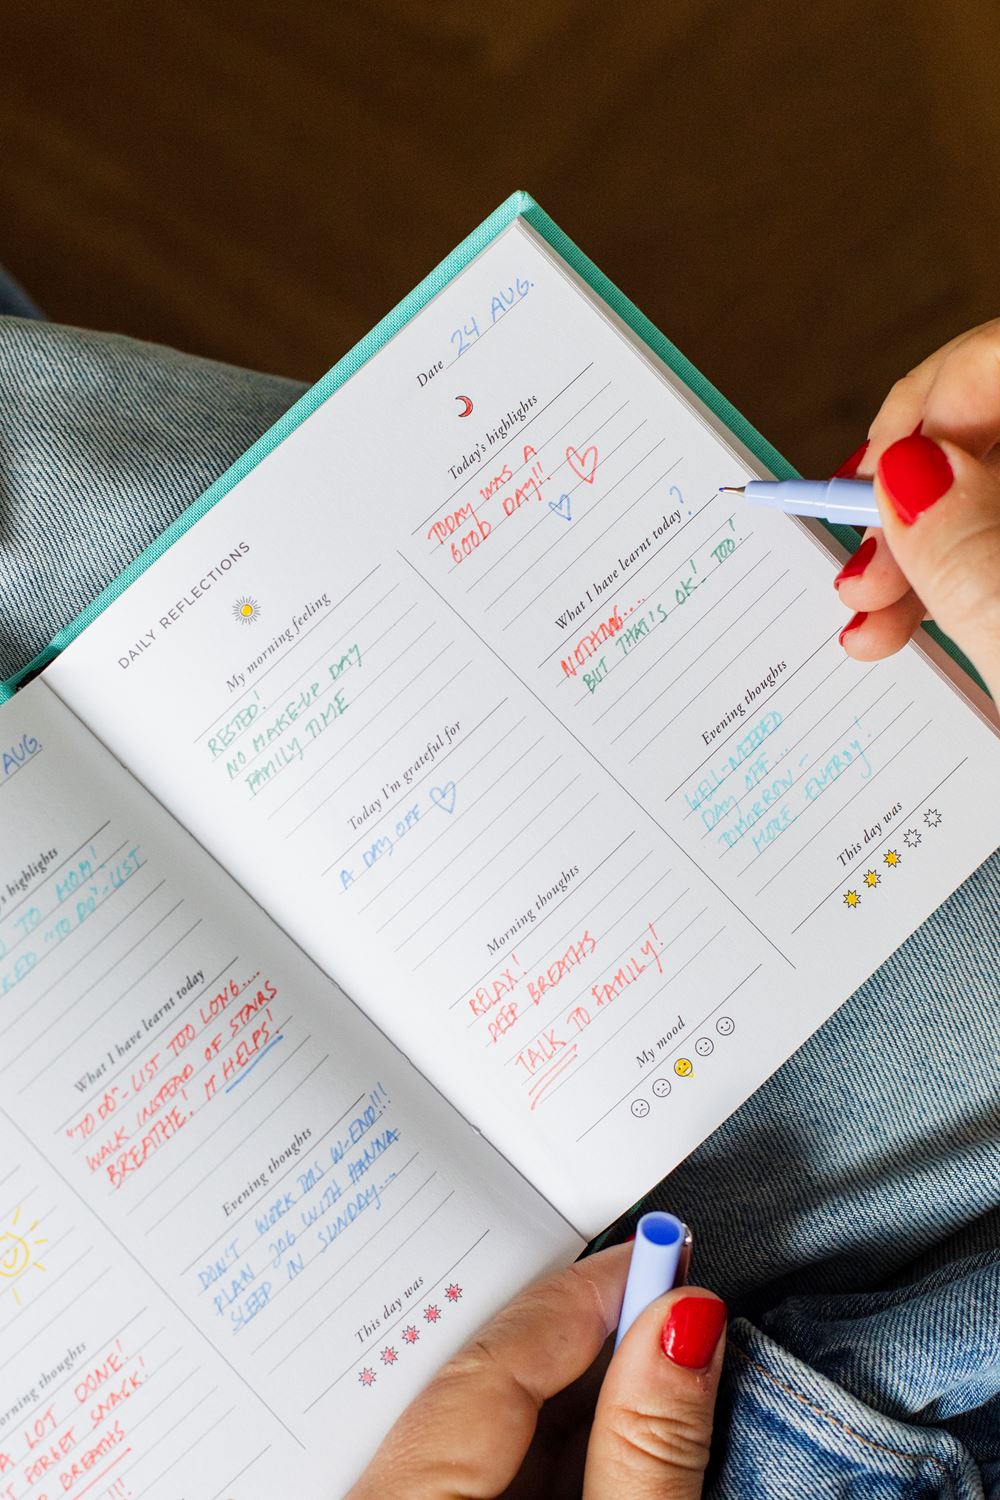 AUG.
s highlights
TO MOM!
KED "TO DO"-LIST
What I have learnt today
"TO DO"-LIST TOO LONG....
WALK INSTEAD OF STAIRS
BREATHE! IT HELPS!
Evening thoughts
DON'T WORK THIS W-END!!!
PLAN JOG WITH HANNA
SLEEP IN SUNDAY...
This day was
orning thoughts
A LOT DONE!
FORGET SNACK!
BREATHS
!!!
DAILY REFLECTIONS
My morning feeling
RESTED!
NO MAKE-UP DAY
FAMILY TIME
Today I'm grateful for
A DAY OFF
Morning thoughts
RELAX!
DEEP BREATHS
TALK TO FAMILY!
My mood
Date 24 AUG.
Today's highlights
TODAY WAS A
GOOD DAY!!
What I have learnt today?
NOTHING....
BUT THAT'S OK! TOO!
Evening thoughts
WELL-NEEDED
DAY OFF...
TOMORROW -
MORE ENERGY!
This day was